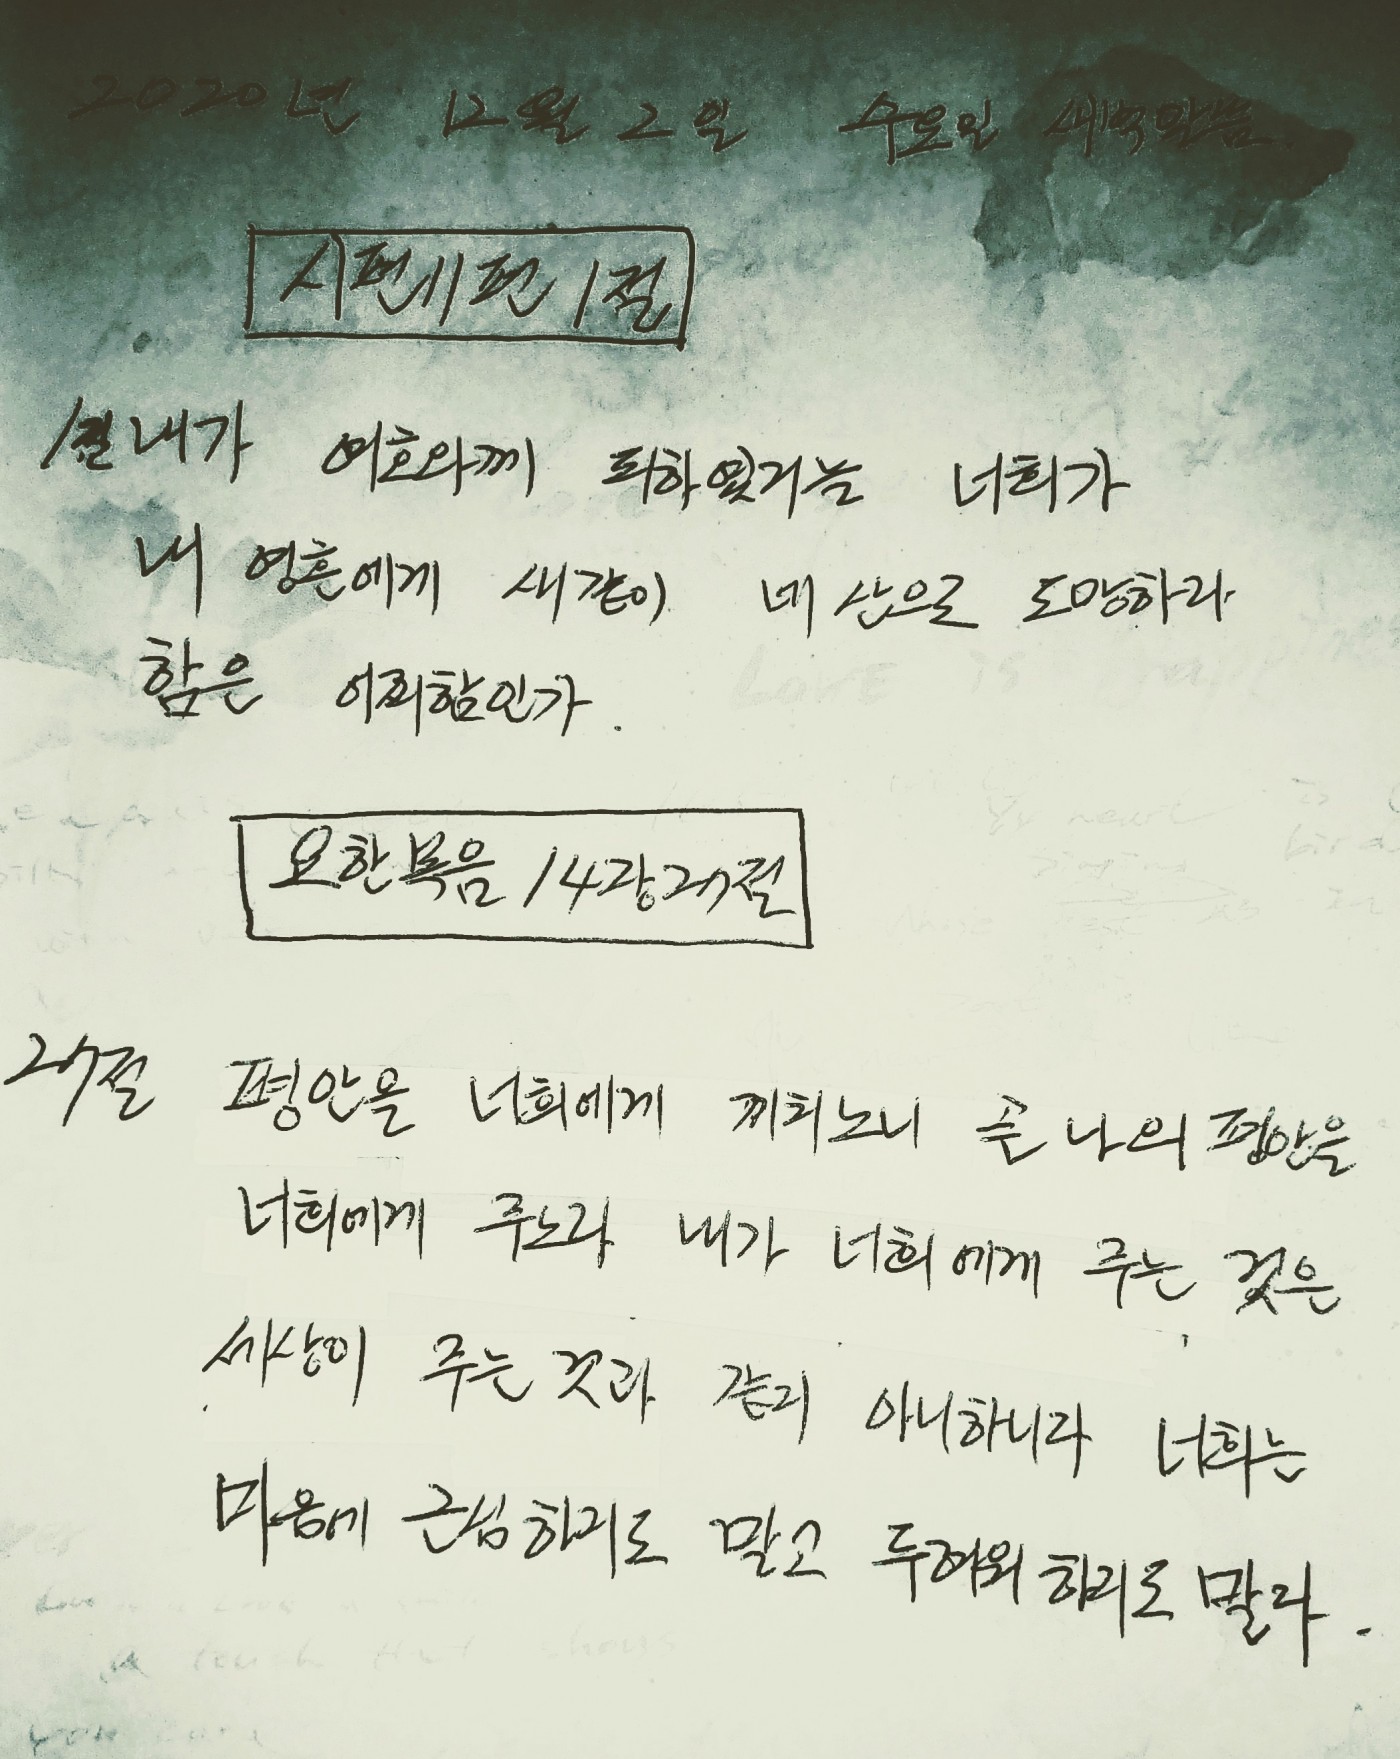 2020년 12월 2일 수요일 새벽말씀.
시편11편 1절
1절 내가 여호와께 피하였거늘 너희가
내 영혼에게 새같이 네 산으로 도망하라
함은 어찌함인가.
요한복음 14장27절
27절 평안을 너희에게 끼치노니 곧 나의 평안을
너희에게 주노라 내가 너희에게 주는 것은
세상이 주는 것과 같지 아니하니라 너희는
마음에 근심하지도 말고 두려워하지도 말라.
LOVE is